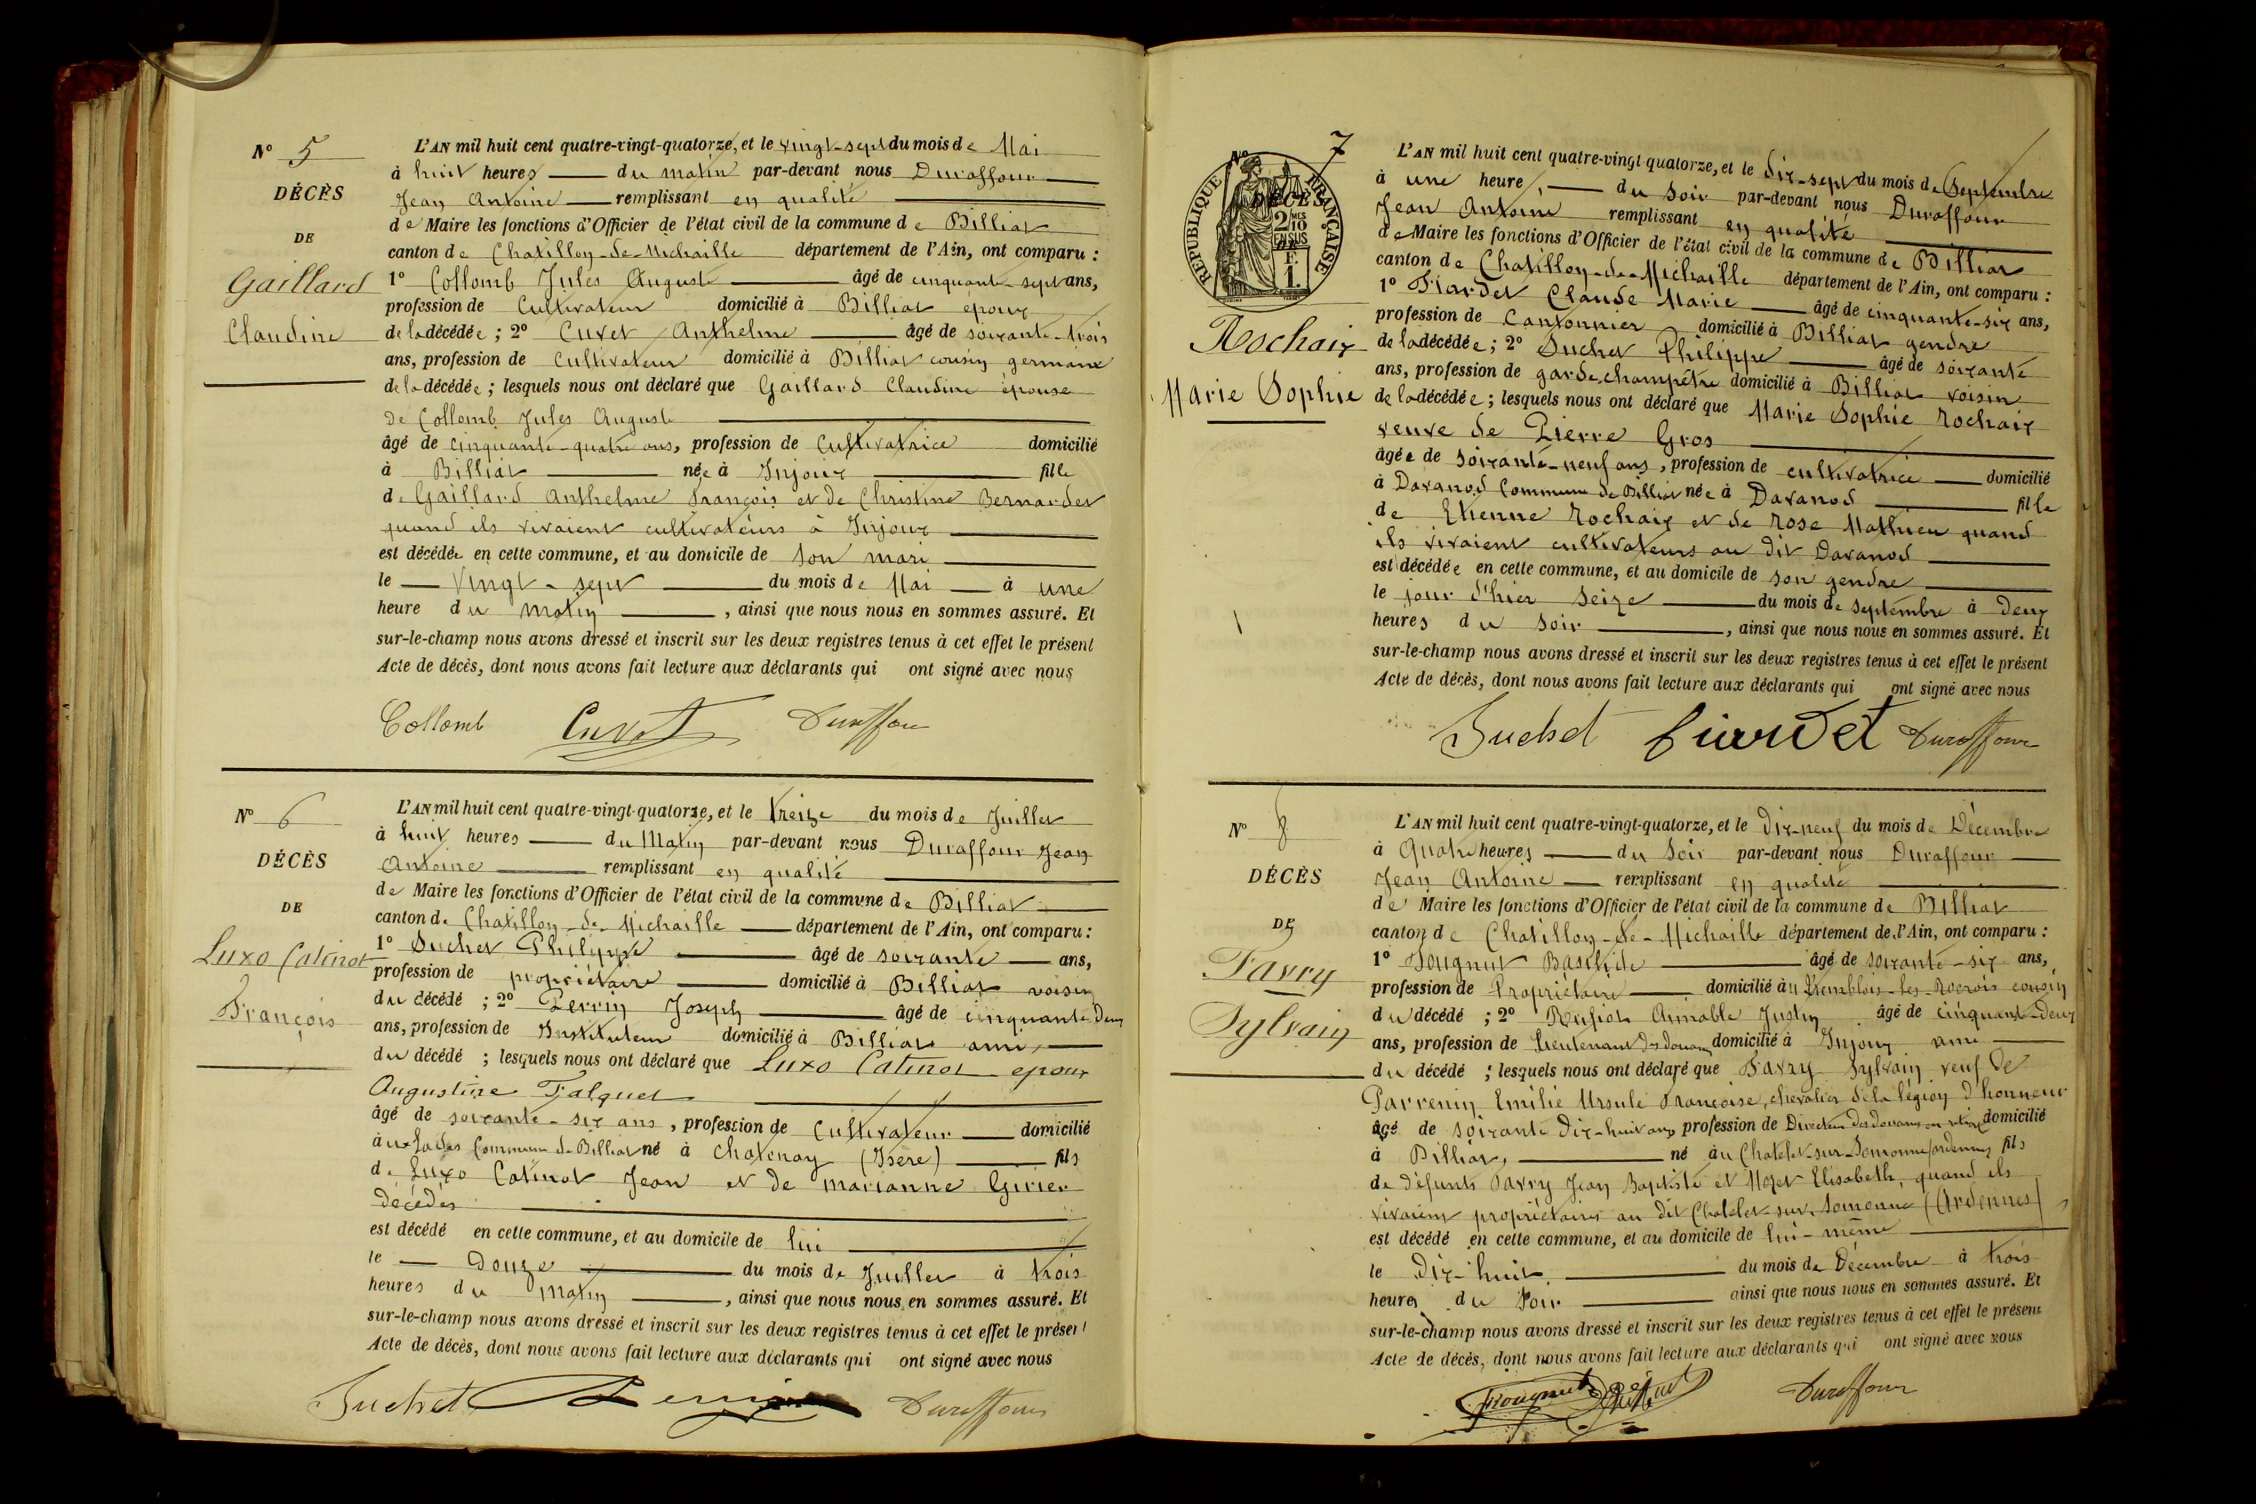 N° 5
DÉCÈS
DE
Gaillard
Claudine
L'AN mil huit cent quatre-vingt-quatorze, et le vingt-sept du mois de Mai
à huit heures du matin par-devant nous Duraffour
Jean Antoine remplissant en qualité
de Maire les fonctions d'Officier de l'état civil de la commune de Billiat
canton de Chatillon-de-Michaille département de l'Ain, ont comparu :
1° Collomb Jules August âgé de cinquante-sept ans,
profession de Cultivateur domicilié à Billiat époux
de la décédée ; 2° Cuvet Anthelme âgé de soixante-trois
ans, profession de Cultivateur domicilié à Billiat cousin germain
de la décédée ; lesquels nous ont déclaré que Gaillard Claudine épouse
de Collomb Jules August
âgé de cinquante-quatre ans, profession de Cultivatrice domicilié
à Billiat née à Injoux fille
de Gaillard Anthelme François et de Christine Bernardet
quand ils vivaient cultivateurs à Injoux
est décédée en cette commune, et au domicile de son mari
le vingt-sept du mois de Mai à une
heure du matin, ainsi que nous nous en sommes assuré. Et
sur-le-champ nous avons dressé et inscrit sur les deux registres tenus à cet effet le présent
Acte de décès, dont nous avons fait lecture aux déclarants qui ont signé avec nous
Collomb Cuvet Duraffour
N° 6
DÉCÈS
DE
Luxo Catinot
François
L'AN mil huit cent quatre-vingt-quatorze, et le treize du mois de Juillet
à huit heures du Matin par-devant nous Duraffour Jean
Antoine remplissant en qualité
de Maire les fonctions d'Officier de l'état civil de la commune de Billiat
canton de Chatillon-de-Michaille département de l'Ain, ont comparu :
1° Suchet Philippe âgé de soixante ans,
profession de propriétaire domicilié à Billiat voisin
du décédé ; 2° Perrin Joseph âgé de cinquante Deux
ans, profession de Instituteur domicilié à Billiat ami,
du décédé ; lesquels nous ont déclaré que Luxo Catinot époux
Augustine Falquet
âgé de soixante-six ans, profession de Cultivateur domicilié
Commune de Billiat né à Chatenay (Isère) fils
de Luxo Catinot Jean et de marianne Girier
décédés
est décédé en cette commune, et au domicile de lui
le Douze du mois de Juillet à trois
heures du Matin, ainsi que nous nous en sommes assuré. Et
sur-le-champ nous avons dressé et inscrit sur les deux registres tenus à cet effet le présent
Acte de décès, dont nous avons fait lecture aux déclarants qui ont signé avec nous
Suchet Perrin Duraffour
N° 7
DÉCÈS
RÉPUBLIQUE FRANÇAISE
2/10 EN SUS
1 F.
Rochaix
Marie Sophie
L'AN mil huit cent quatre-vingt quatorze, et le dix-sept du mois de Septembre
à une heure, du soir par-devant nous Duraffour
Jean Antoine remplissant en qualité
de Maire les fonctions d'Officier de l'état civil de la commune de Billiat
canton de Chatillon-de-Michaille département de l'Ain, ont comparu :
1° Fiardet Claude Marie âgé de cinquante-six ans,
profession de Cantonnier domicilié à Billiat gendre
de la décédée ; 2° Suchet Philippe âgé de soixante
ans, profession de garde champêtre domicilié à Billiat voisin
de la décédée ; lesquels nous ont déclaré que Marie Sophie Rochaix
veuve de Pierre Gros
âgée de soixante-neuf ans, profession de cultivatrice domicilié
à Davanod Commune de Billiat née à Davanod fille
de Etienne Rochaix et de Rose Mathieu quand
ils vivaient cultivateurs au dit Davanod
est décédée en cette commune, et au domicile de son gendre
le jour d'hier seize du mois de septembre à deux
heures du soir, ainsi que nous nous en sommes assuré. Et
sur-le-champ nous avons dressé et inscrit sur les deux registres tenus à cet effet le présent
Acte de décès, dont nous avons fait lecture aux déclarants qui ont signé avec nous
Suchet Fiardet Duraffour
N° 8
DÉCÈS
DE
Favry
Sylvain
L'AN mil huit cent quatre-vingt-quatorze, et le Dix-neuf du mois de Décembre
à Quatre heures du Soir par-devant nous Duraffour
Jean Antoine remplissant en qualité
de Maire les fonctions d'Officier de l'état civil de la commune de Billiat
canton de Chatillon-de-Michaille département de l'Ain, ont comparu :
1° Basilide âgé de soixante-six ans,
profession de Propriétaire domicilié à Tremblois-les-Rocrois cousin
du décédé ; 2° Aimable Justin âgé de cinquante-deux
ans, profession de Lieutenant des douanes domicilié à Injoux ami
du décédé ; lesquels nous ont déclaré que Favry Sylvain veuf de
Parrenin Emilie Ursule Françoise, chevalier de la légion d'honneur
âgé de soixante Dix-huit ans profession de Directeur des douanes en retraite domicilié
à Billiat, né au Chatelet-sur-Semonne fils
de défunts Favry Jean Baptiste et Elisabeth, quand ils
vivaient propriétaires au dit Chatelet-sur-Semonne (Ardennes)
est décédé en cette commune, et au domicile de lui-même
le Dix-huit du mois de Décembre à trois
heures du soir ainsi que nous nous en sommes assuré. Et
sur-le-champ nous avons dressé et inscrit sur les deux registres tenus à cet effet le présent
Acte de décès, dont nous avons fait lecture aux déclarants qui ont signé avec nous
Duraffour